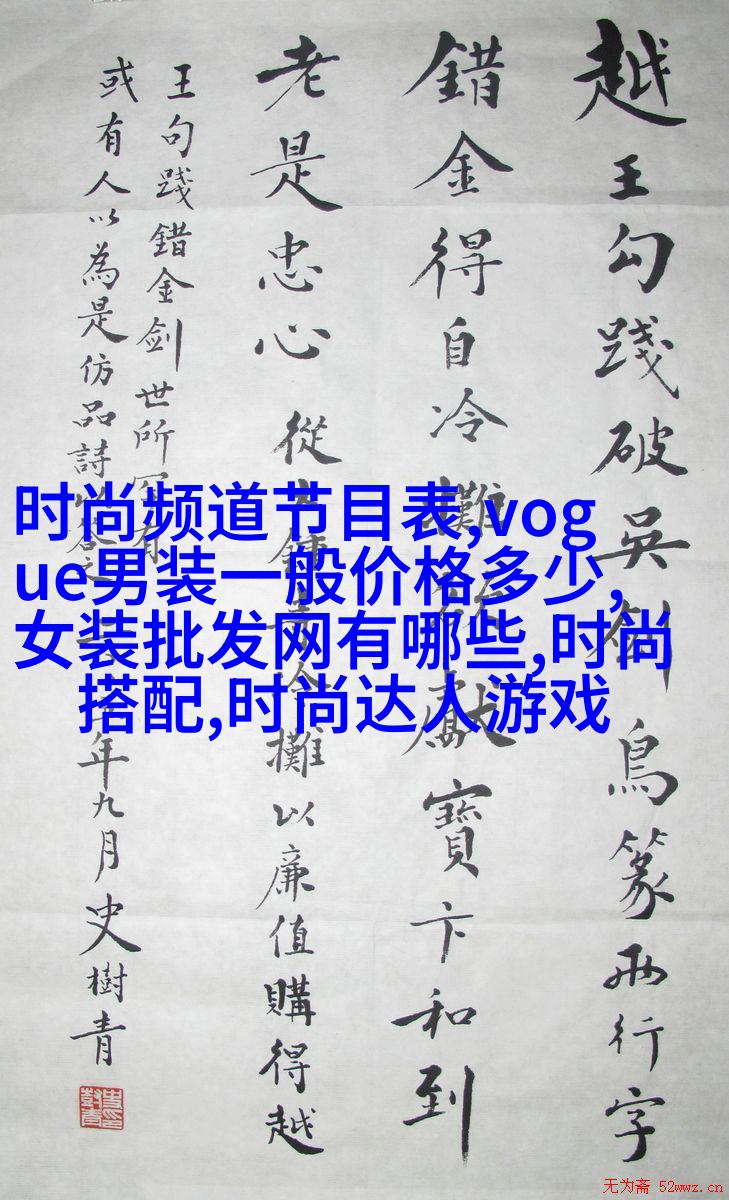 越王勾踐破吳劍鳥篆兩行字
錯金得自冷攤獻寶卞和到
老是忠心 從攤以廉值購得越
王句踐錯金剑世所
或有人以為是仿品詩年九月史樹青
时尚频道节目表,vog
ue男装一般价格多少,
女装批发网有哪些,时尚
搭配,时尚达人游戏
无为斋 52wwz.cn